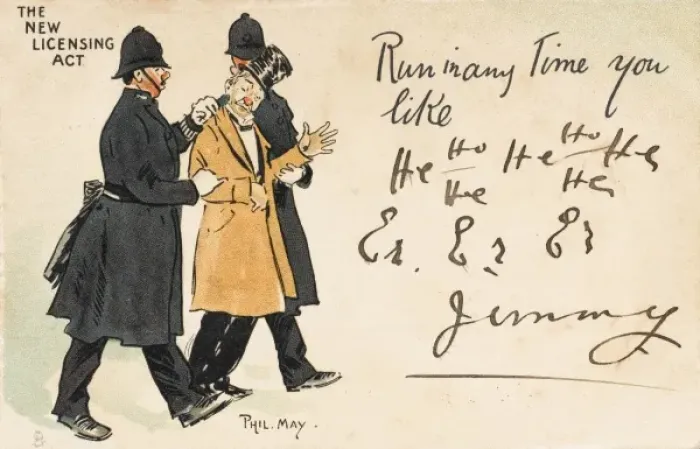 THE
NEW
LICENSING
ACT
Run in any Time you
like
He Ho He Ho He
He He
Er. Er Er
Jimmy
PHIL. MAY.